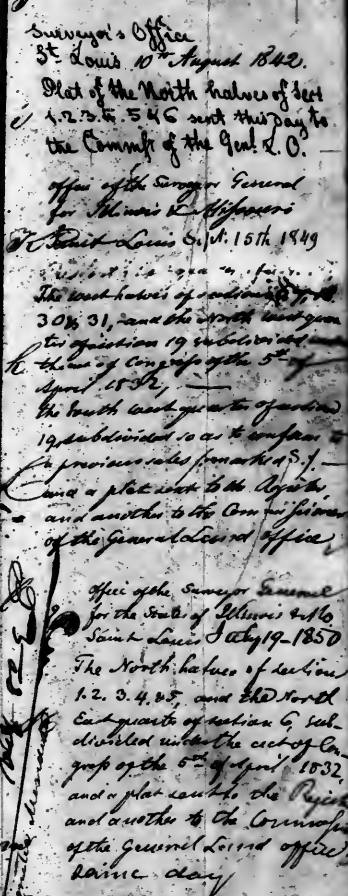 Surveyor's Office
St. Louis 10th August 1842.
Plat of the North halves of Sec
1. 2. 3. 4. 5 & 6 sent this day to
the Commr of the Genl. L. O.
office of the Surveyor General
for Illinois & Missouri
Saint Louis Sept. 15th 1849
The west halves of sections
30 & 31, and the North west quar
ter of section 19 subdivided under
the act of Congress of the 5th of
April 1832,
the South west quarter of section
19, subdivided so as to conform to
previous sales (marked S.)
and a plat sent to the Register,
and another to the Commissioner
of the General Land office
Office of the Surveyor General
for the States of Illinois & Mo
Saint Louis July 19-1850
The North halves of section
1. 2. 3. 4. & 5, and the North
East quarter of section 6, sub-
divided under the act of Con
gress of the 5th of April, 1832,
and a plat sent to the Regist
and another to the Commiss
of the General Land office
same day